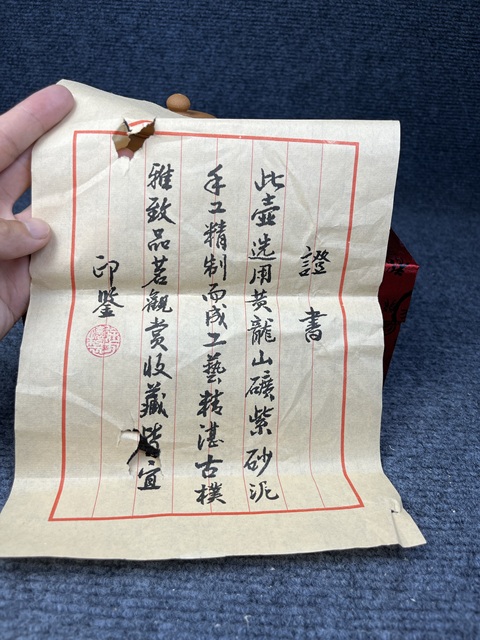 證書
此壺选用黄龍山礦紫砂泥
手工精制而成工藝精湛古樸
雅致品茗觀賞收藏皆宜
印鑒